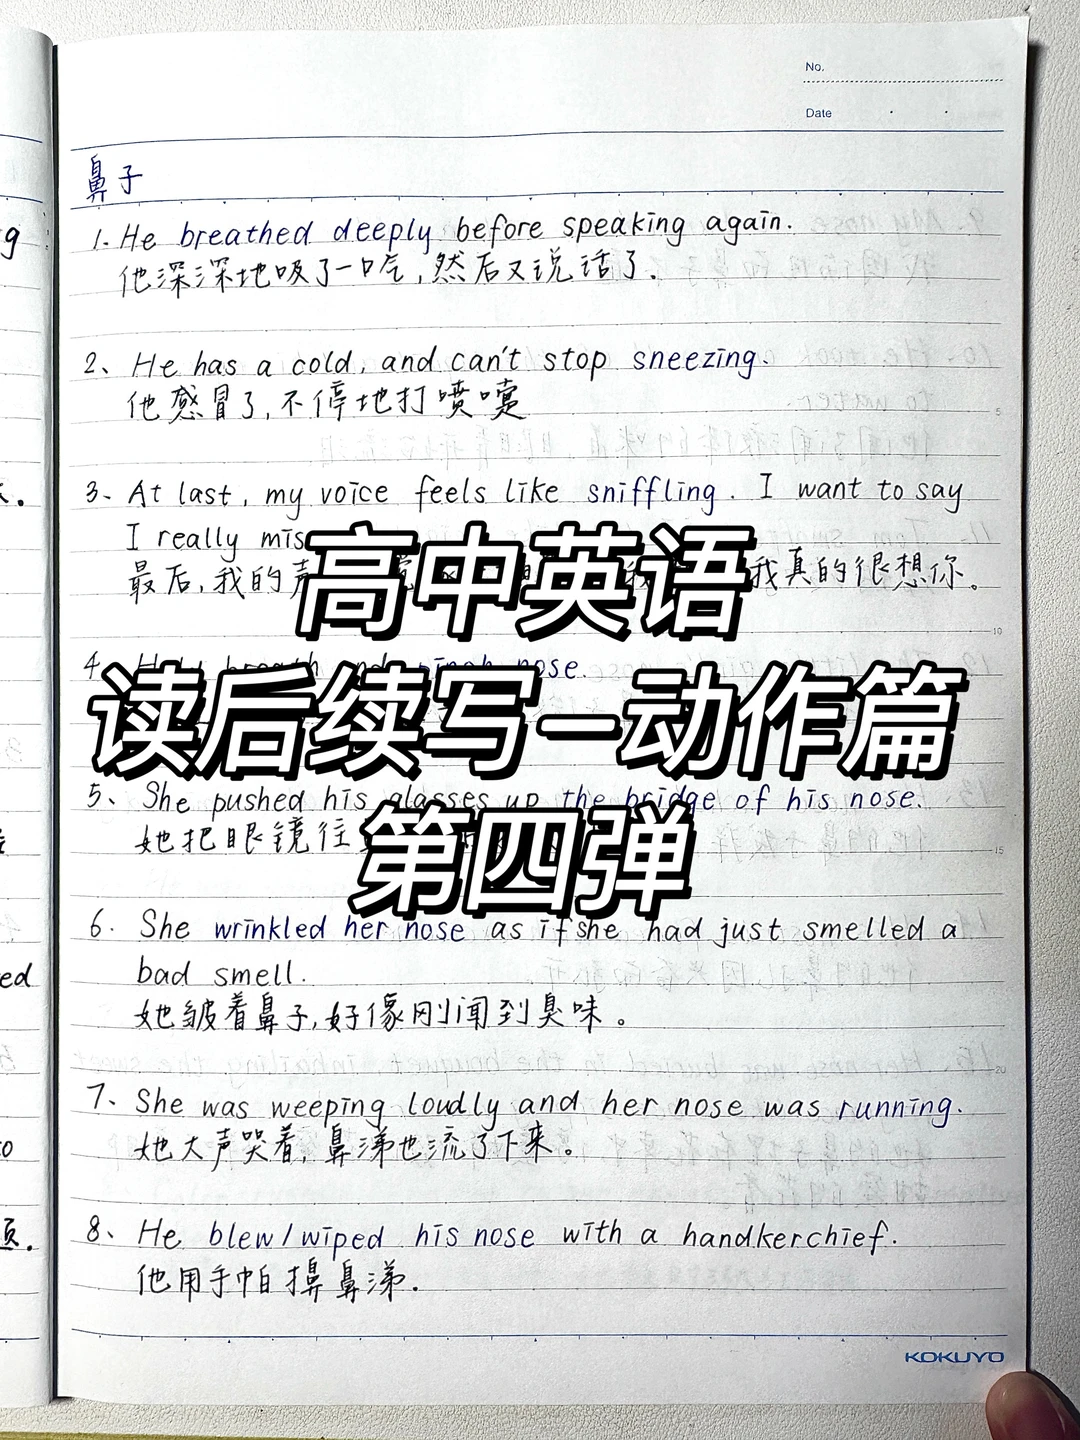 No.
Date
鼻子
1. He breathed deeply before speaking again.
他深深地吸了一口气,然后又说话了.
2、He has a cold, and can't stop sneezing.
他感冒了,不停地打喷嚏
3、At last, my voice feels like sniffling. I want to say
I really mis
最后,我的声 我真的很想你。
高中英语
4、 breath and pinch nose.
读后续写-动作篇
5、She pushed his glasses up the bridge of his nose.
她把眼镜往
第四弹
6. She wrinkled her nose as if she had just smelled a
bad smell.
她皱着鼻子,好像刚闻到臭味。
7、She was weeping loudly and her nose was running.
她大声哭着,鼻涕也流了下来。
8、He blew/wiped his nose with a handkerchief.
他用手帕擤鼻涕.
5
10
15
20
KOKUYO